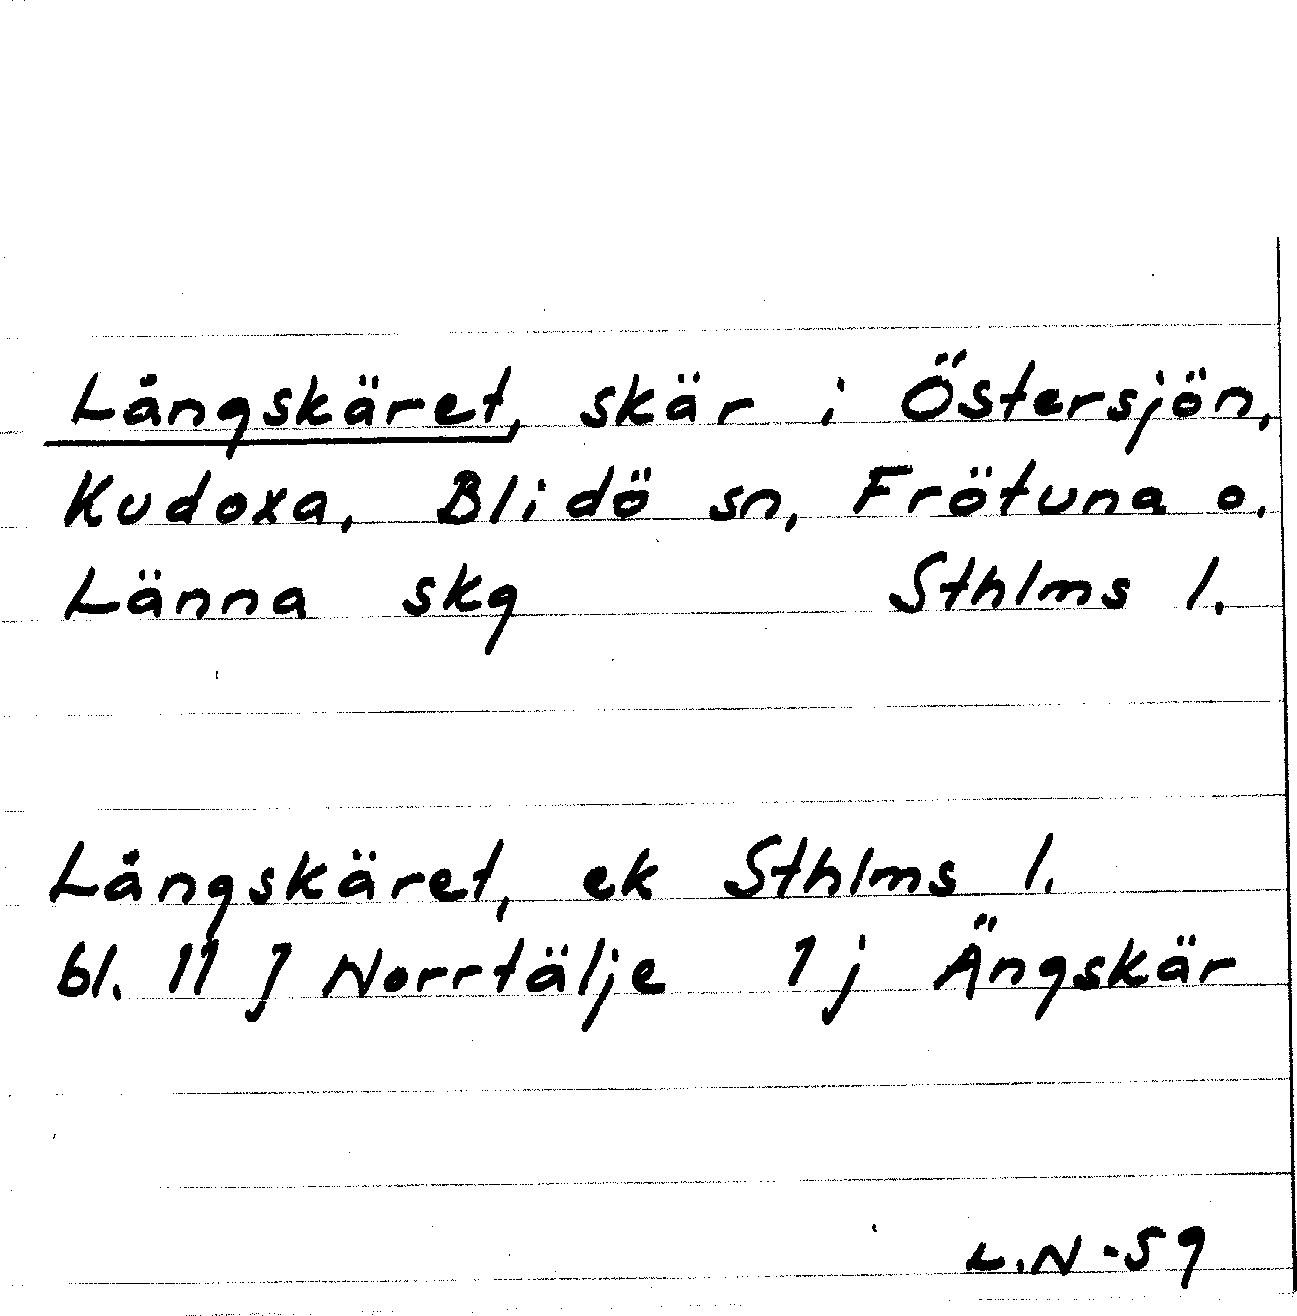 Långskäret, skär i Östersjön,
Kudoxa, Blidö sn, Frötuna o.
Länna skg Sthlms l.
Långskäret, ek Sthlms l.
bl. 11 J Norrtälje 1 j Ängskär
L.N-59